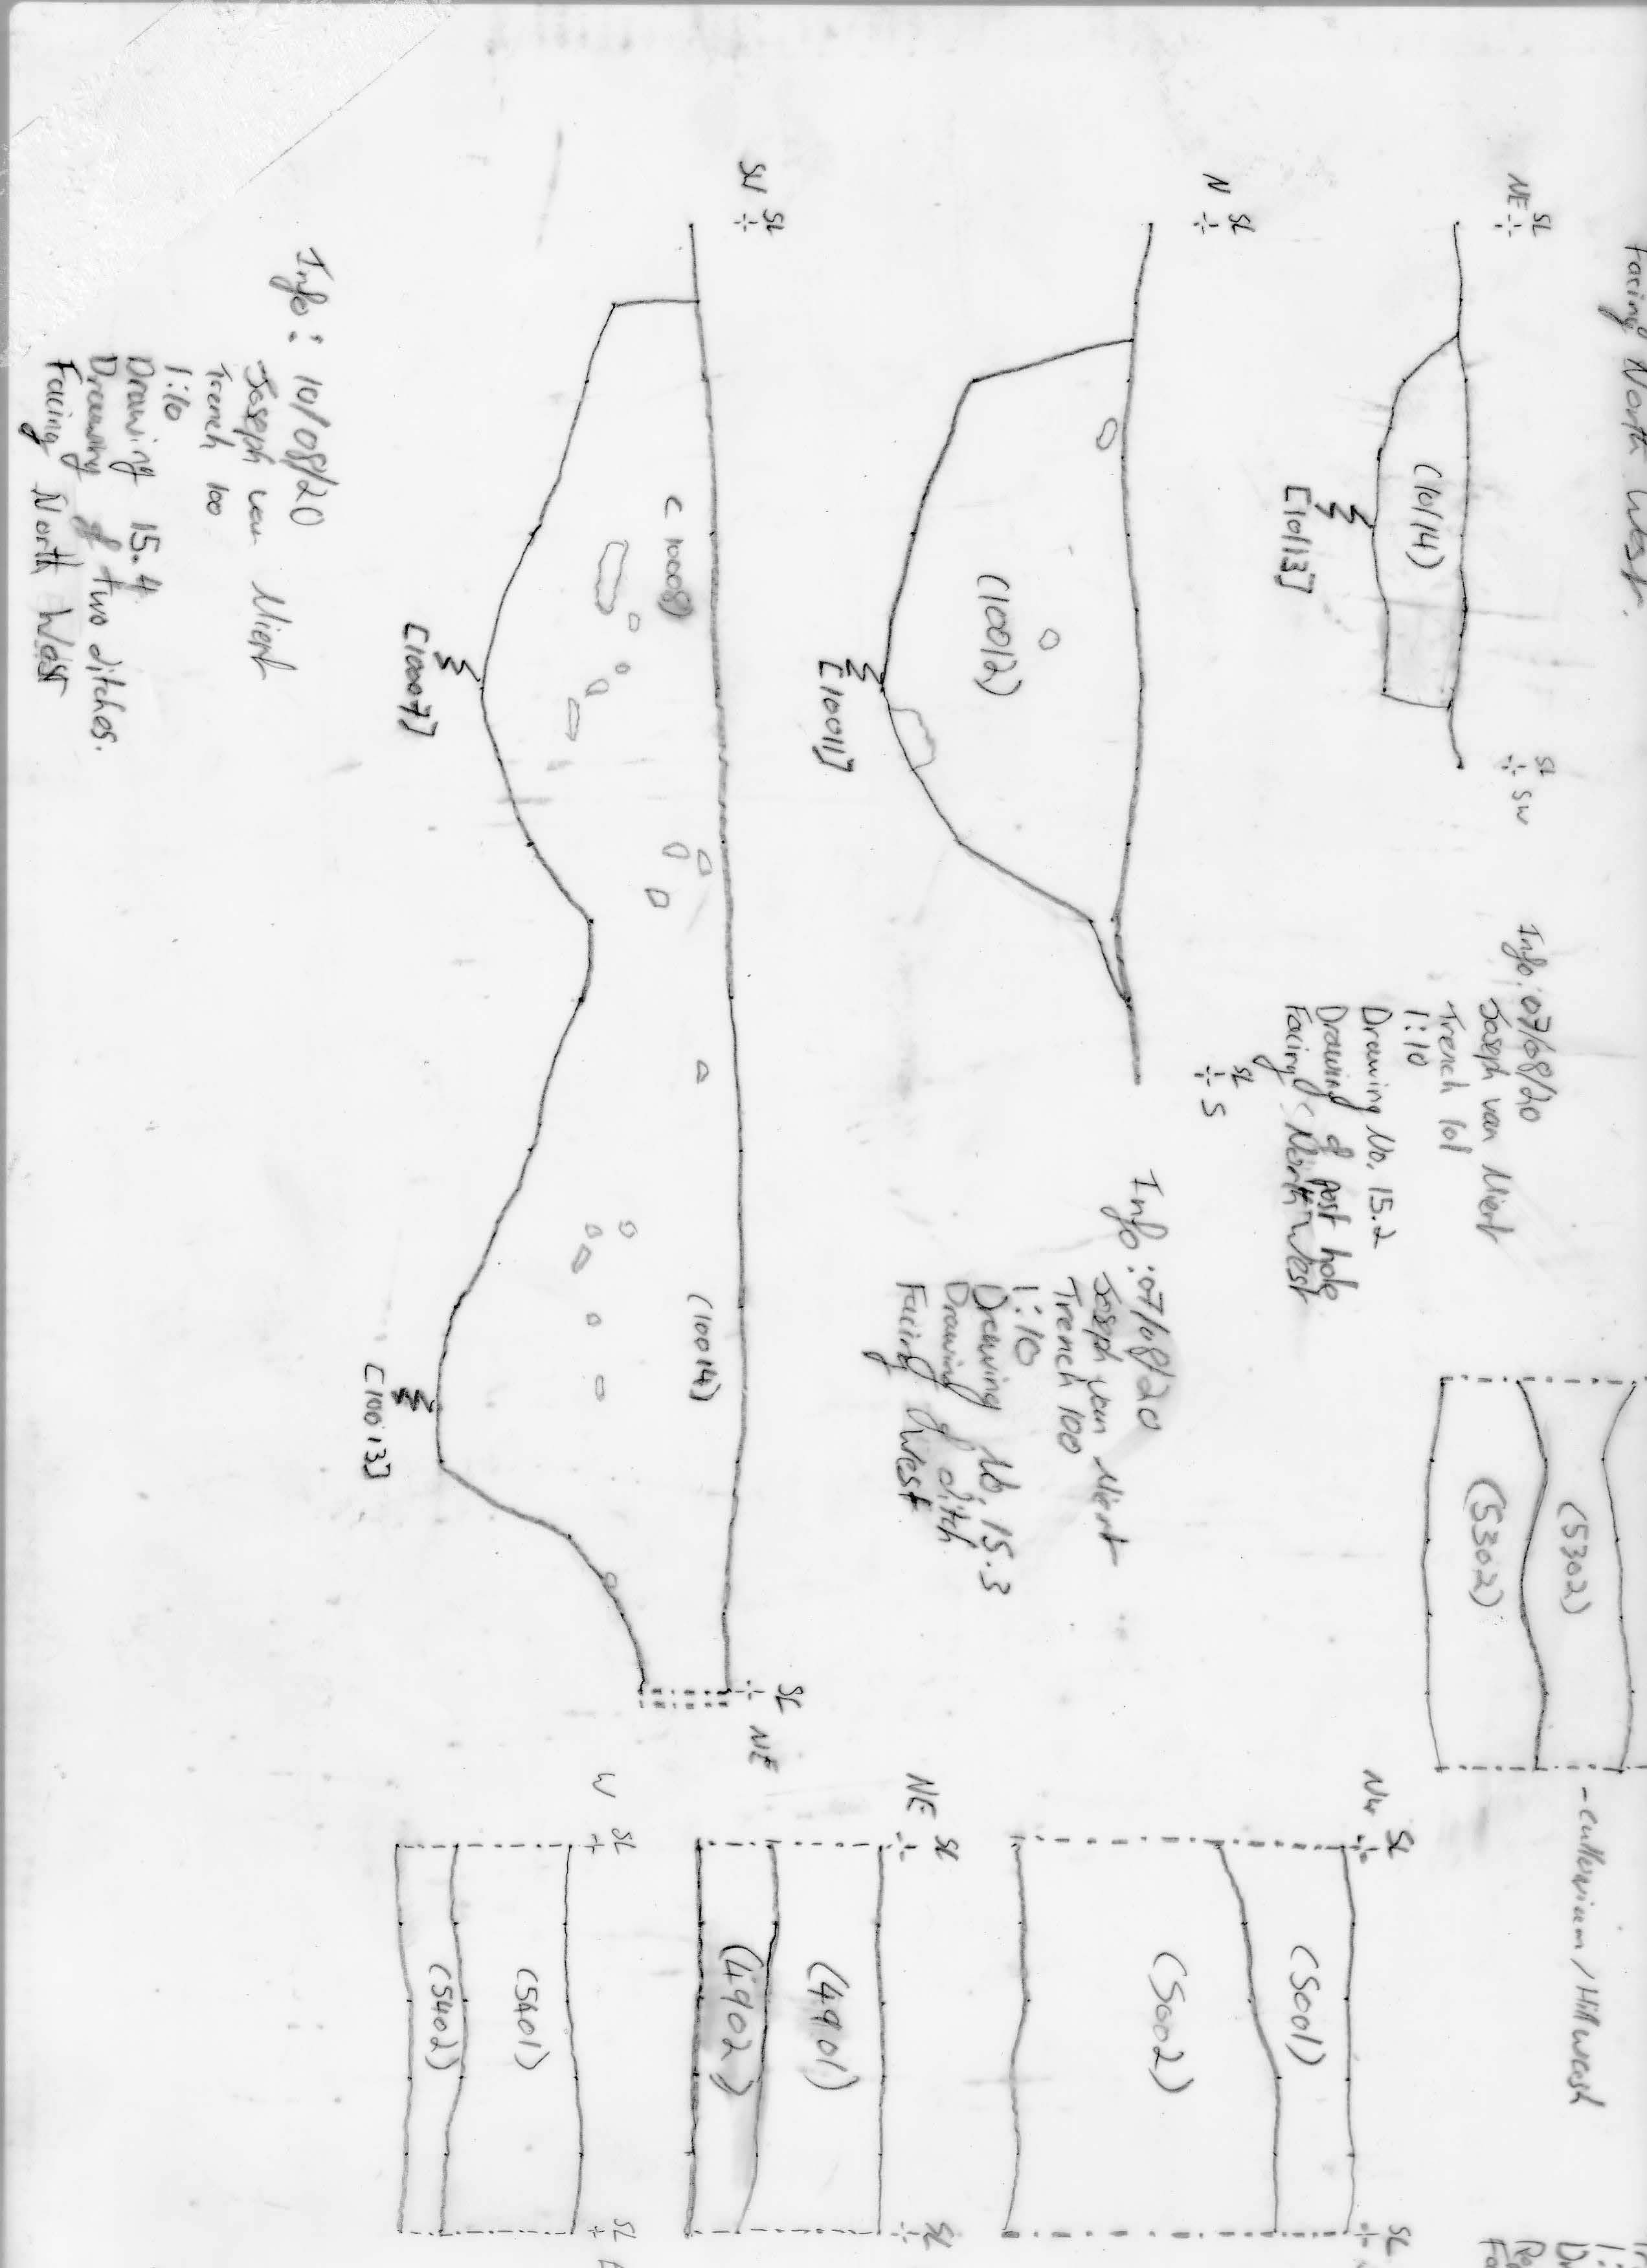 Facing North West.
NE SL
SL SW
(10114)
[10113]
Info: 07/08/20
Joseph van Miert
Trench 101
1:10
Drawing No. 15.2
Drawing of post hole
Facing North West
N SL
SL S
(10012)
[10011]
Info: 07/08/20
Joseph van Miert
Trench 100
1:10
Drawing No. 15.3
Drawing of ditch
Facing West
SW SL
SL NE
(10008)
(10014)
[10007]
[10013]
Info: 10/08/20
Joseph van Miert
Trench 100
1:10
Drawing 15.4
Drawing of two ditches.
Facing North West
(5302)
(5302)
- Colluvium / Hillwash
NW SL
SL
(5001)
(5002)
NE SL
SL
(4901)
(4902)
W SL
SL
(5401)
(5402)